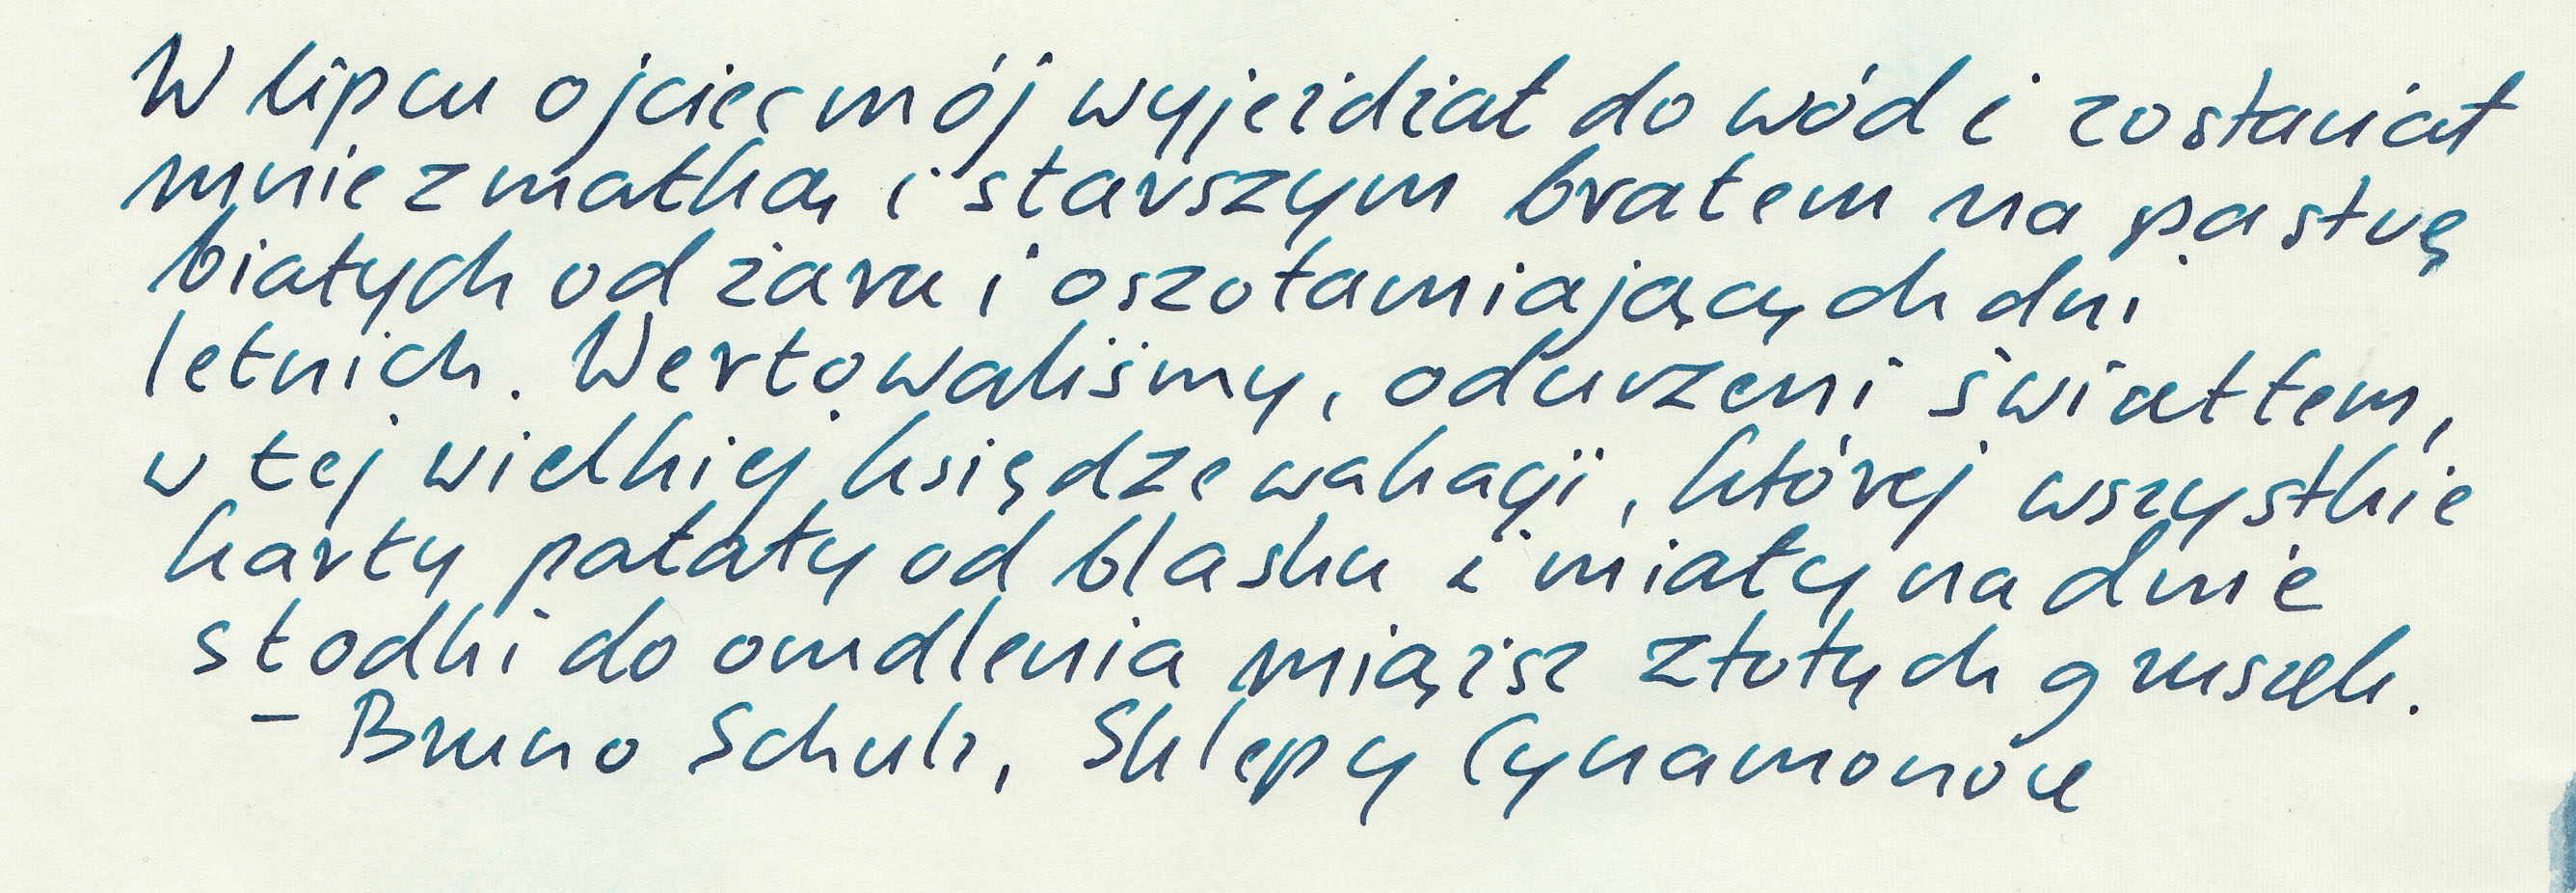 W lipcu ojciec mój wyjeżdżał do wód i zostawiał
mnie z matką i starszym bratem na pastwę
białych od żaru i oszołamiających dni
letnich. Wertowaliśmy, odurzeni światłem,
w tej wielkiej księdze wakacji, której wszystkie
karty pałały od blasku i miały na dnie
słodki do omdlenia miąższ złotych gruszek.
– Bruno Schulz, Sklepy Cynamonowe